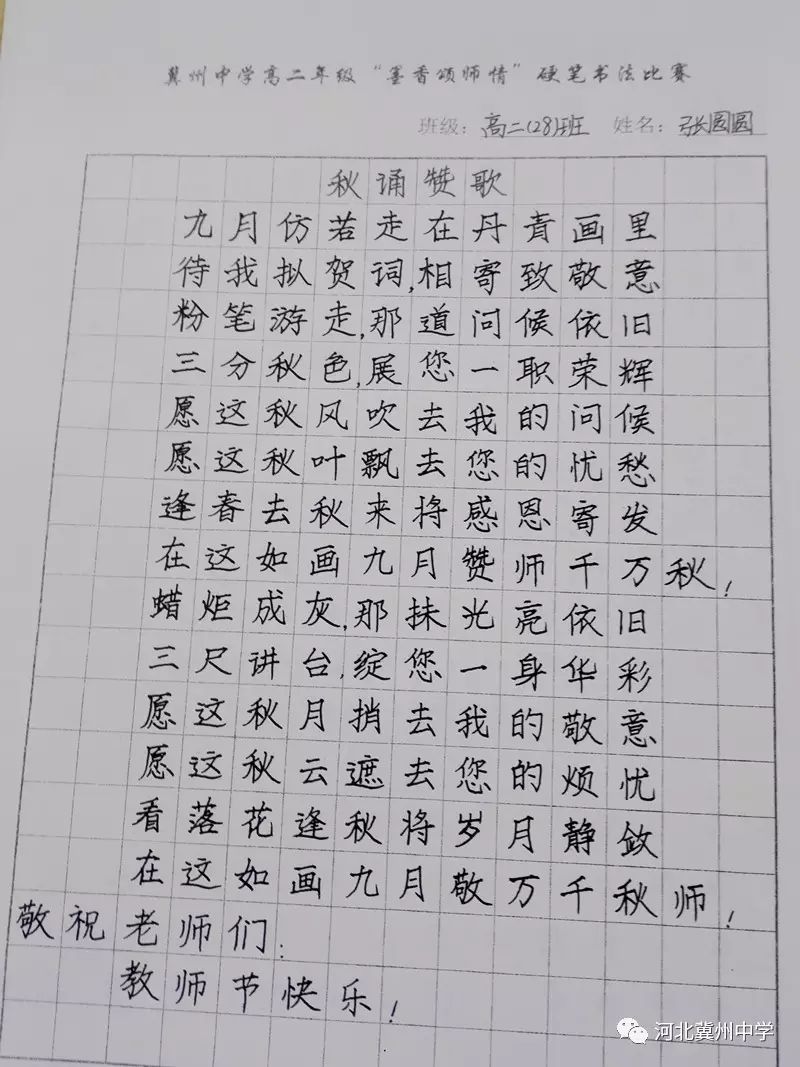 冀州中学高二年级“墨香颂师情”硬笔书法比赛
班级：高二(28)班 姓名：张圆圆
秋诵赞歌
九月仿若走在丹青画里
待我拟贺词,相寄致敬意
粉笔游走,那道问候依旧
三分秋色,展您一职荣辉
愿这秋风吹去我的问候
愿这秋叶飘去您的忧愁
逢春去秋来将感恩寄发
在这如画九月赞师千万秋！
蜡炬成灰,那抹光亮依旧
三尺讲台,绽您一身华彩
愿这秋月捎去我的敬意
愿这秋云遮去您的烦忧
看落花逢秋将岁月静敛
在这如画九月敬万千秋师！
敬祝老师们：
教师节快乐！
河北冀州中学